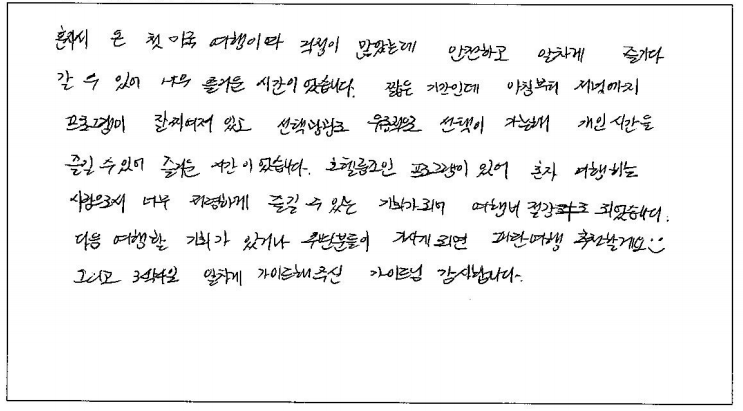 혼자서 온 첫 미국 여행이라 걱정이 많았는데 안전하고 알차게 즐기다
갈 수 있어 너무 즐거운 시간이었습니다. 짧은 기간인데 아침부터 저녁까지
프로그램이 잘 짜여져 있고 선택관광도 유동적으로 선택이 가능해 개인시간을
즐길 수 있어 즐거운 시간이었습니다. 호텔룸조인 프로그램이 있어 혼자 여행하는
사람으로서 너무 저렴하게 즐길 수 있는 기회가 되어 여행비 절감도 되었습니다.
다음 여행할 기회가 있거나 주변분들이 가시게 되면 파란여행 추천할게요
그리고 3박4일 알차게 가이드해주신 가이드님 감사합니다.